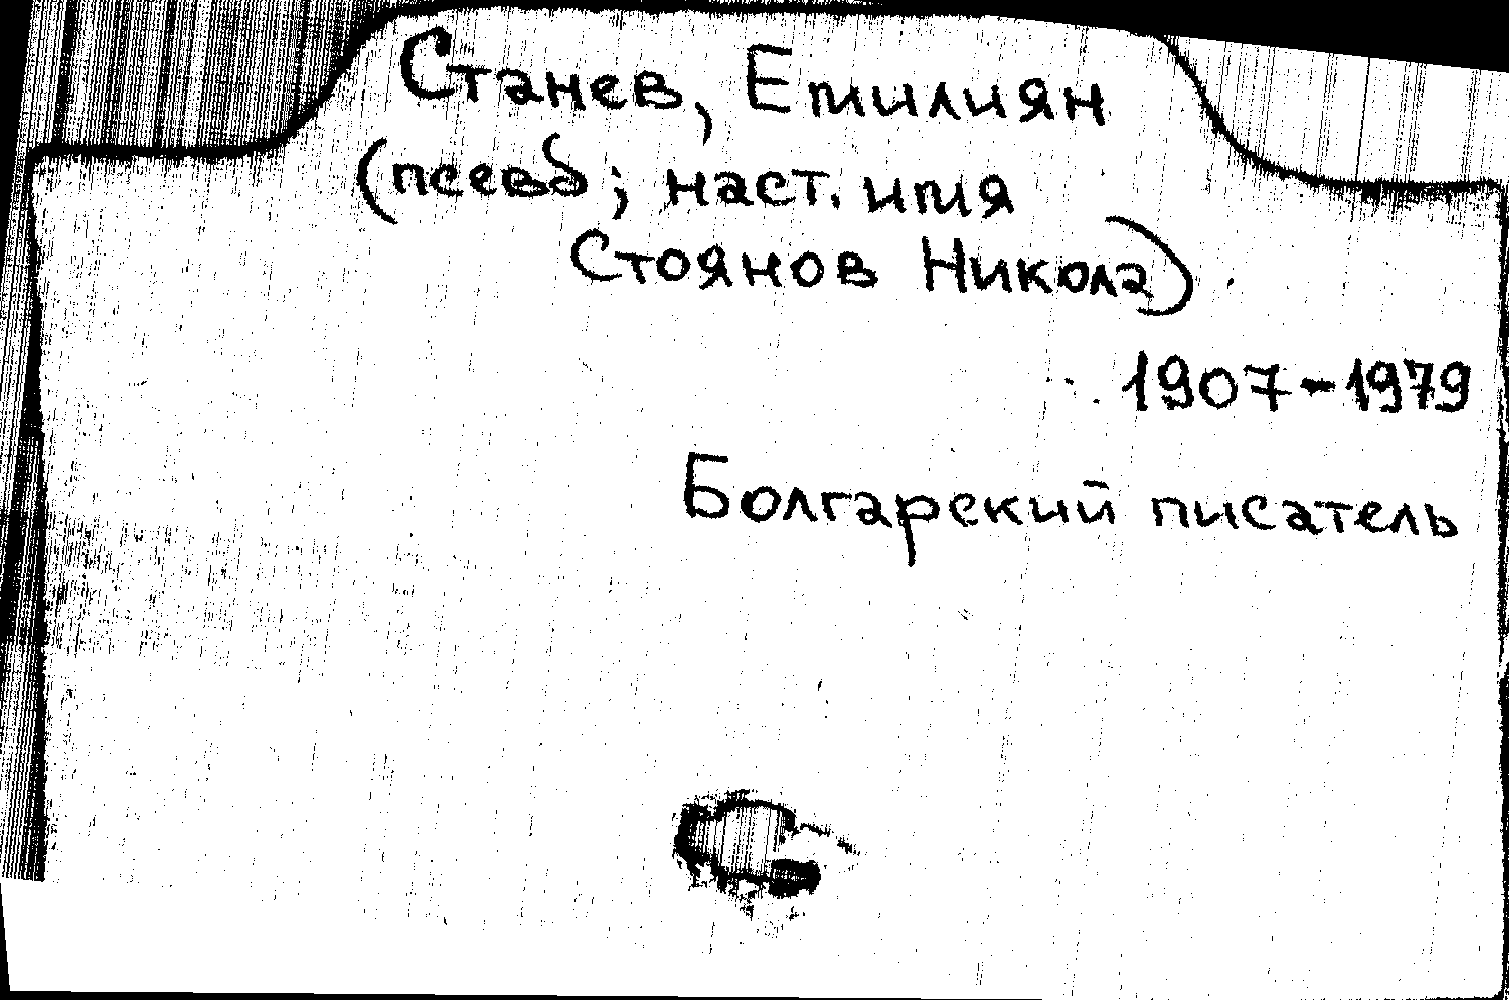 Станев, Емилиян
(псевд; наст. имя
Стоянов Никола)
1907-1979
Болгарский писатель